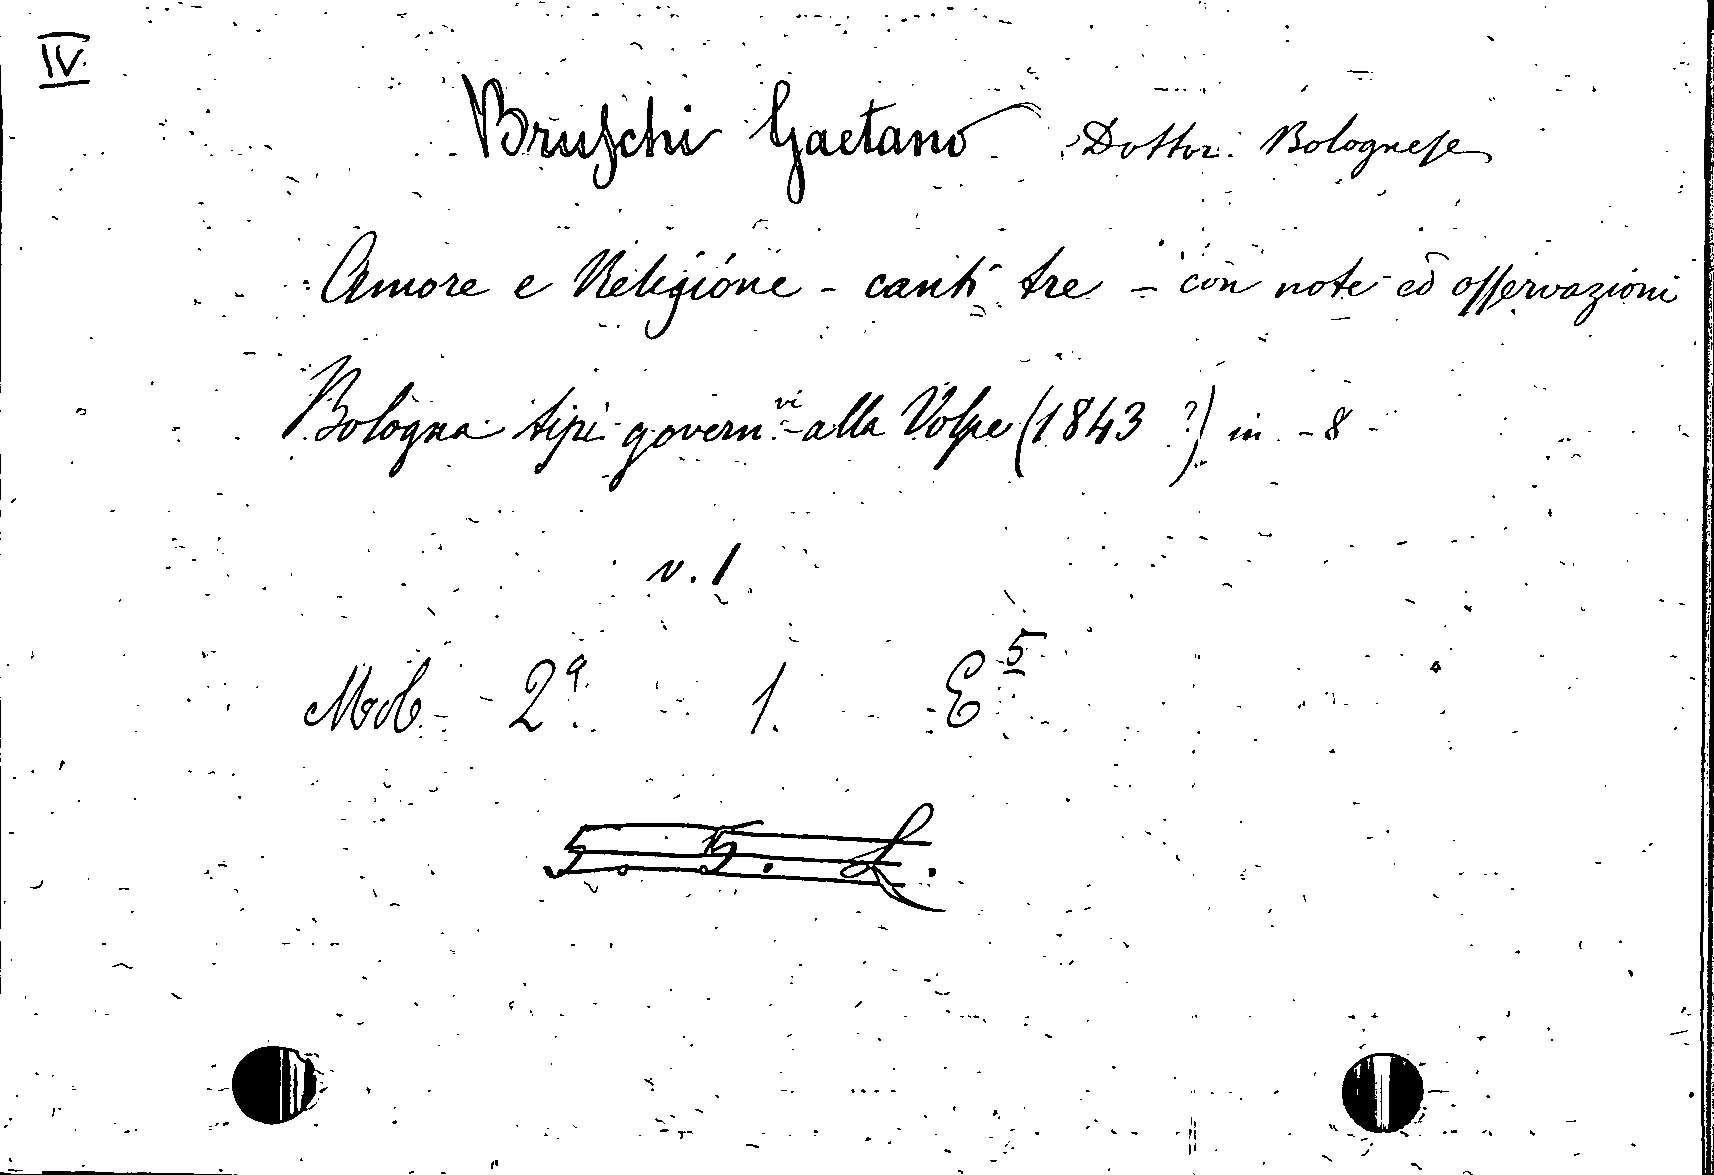 IV.
Bruschi Gaetano Dottor. Bolognese
Amore e Religione - canti tre - con note ed osservazioni
Bologna tipi govern.vi alla Volpe (1843 ?) in - 8 -
v. 1
Mob. 2a. 1. E5
5. 5. L.